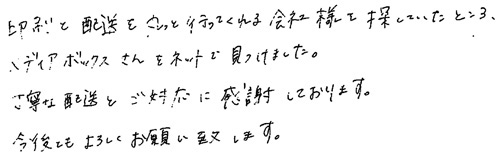 印刷と配送をやっと行ってくれる会社様を探していたところ、
メディアボックスさんをネットで見つけました。
丁寧な配送とご対応に感謝しております。
今後ともよろしくお願い致します。